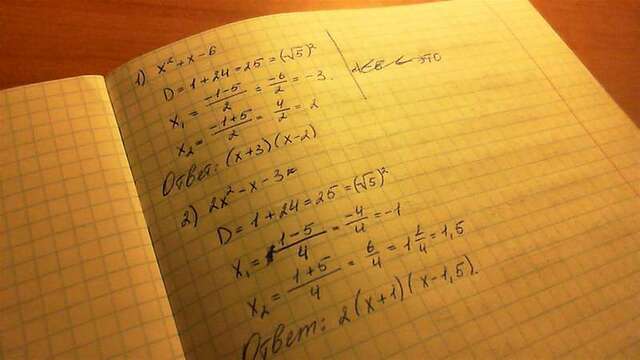 1) x² + x - 6
D = 1 + 24 = 25 = (√5)²
x₁ = (-1-5)/2 = -6/2 = -3.
x₂ = (-1+5)/2 = 4/2 = 2
Ответ: (x+3)(x-2)
2) 2x² - x - 3
D = 1 + 24 = 25 = (√5)²
x₁ = (1-5)/4 = -4/4 = -1
x₂ = (1+5)/4 = 6/4 = 1,5
Ответ: 2(x+1)(x-1,5).
← это